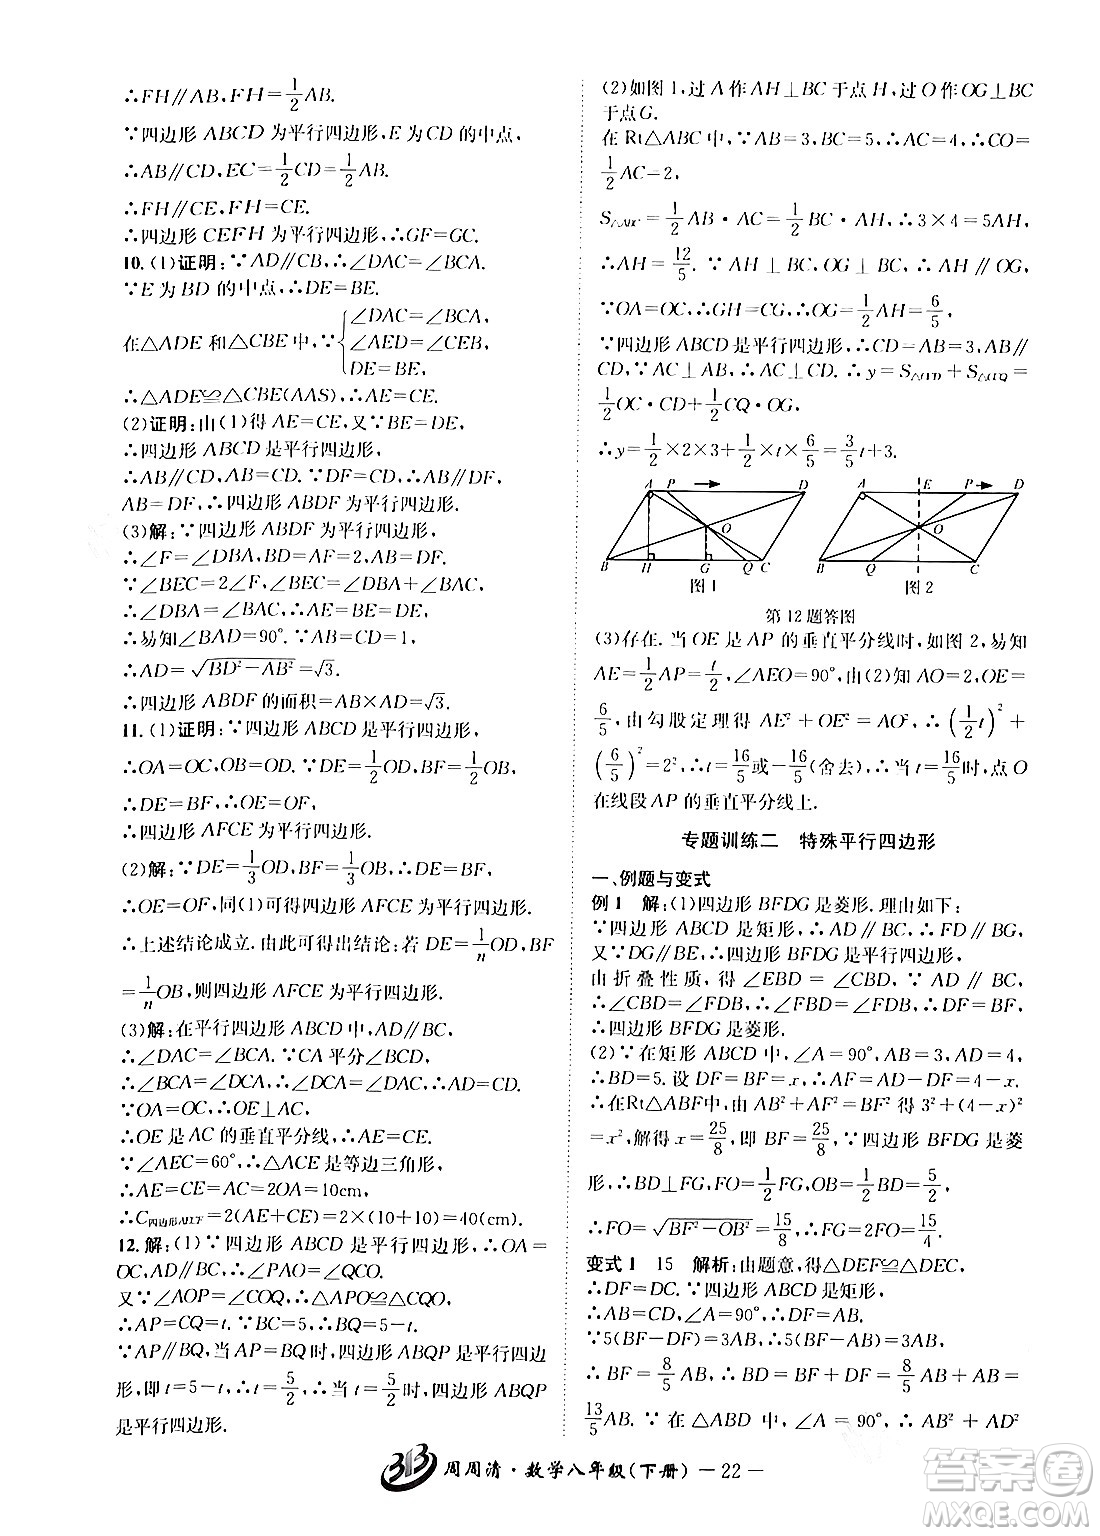 ∴FH∥AB,FH=1/2AB.
∵四边形 ABCD 为平行四边形,E 为 CD 的中点,
∴AB∥CD,EC=1/2CD=1/2AB.
∴FH∥CE,FH=CE.
∴四边形 CEFH 为平行四边形,∴GF=GC.
10.(1)证明:∵AD∥CB,∴∠DAC=∠BCA.
∵E 为 BD 的中点,∴DE=BE.
在△ADE 和△CBE 中,∵{∠DAC=∠BCA,
∠AED=∠CEB,
DE=BE,
∴△ADE≌△CBE(AAS).
(2)证明:由(1)得 AE=CE,又∵BE=DE,
∴四边形 ABCD 是平行四边形,
∴AB∥CD,AB=CD.∵DF=CD,∴AB∥DF,
AB=DF,∴四边形 ABDF 为平行四边形.
(3)解:∵四边形 ABDF 为平行四边形,
∴∠F=∠DBA,BD=AF=2,AB=DF.
∵∠BEC=2∠F,∠BEC=∠DBA+∠BAC,
∴∠DBA=∠BAC,
∴易知∠BAD=90°.∵AB=CD=1,
∴AD=√BD²-AB²=√3.
∴四边形 ABDF 的面积=AB×AD=√3.
11.(1)证明:∵四边形 ABCD 是平行四边形,
∴OA=OC,OB=OD.∵DE=1/2OD,BF=1/2OB,
∴DE=BF,∴OE=OF,
∴四边形 AFCE 为平行四边形.
(2)解:∵DE=1/3OD,BF=1/3OB,∴DE=BF.
∴OE=OF,同(1)可得四边形 AFCE 为平行四边形.
∴上述结论成立.由此可得出结论:若 DE=1/nOD,BF
=1/nOB,则四边形 AFCE 为平行四边形.
(3)解:在平行四边形 ABCD 中,AD∥BC,
∴∠DAC=∠BCA.∵CA 平分∠BCD,
∴∠BCA=∠DCA,∴∠DAC=∠DCA,∴AD=CD.
∵OA=OC,∴OE⊥AC,
∴OE 是 AC 的垂直平分线,∴AE=CE.
∵∠AEC=60°,∴△ACE 是等边三角形,
∴AE=CE=AC=2OA=10cm,
∴C四边形AFCE=2(AE+CE)=2×(10+10)=40(cm).
12.解:(1)∵四边形 ABCD 是平行四边形,∴OA=
OC,AD∥BC,∴∠PAO=∠QCO.
又∵∠AOP=∠COQ,∴△APO≌△CQO,
∴AP=CQ=t.∵BC=5,∴BQ=5-t.
∵AP∥BQ,当 AP=BQ 时,四边形 ABQP 是平行四边
形,即 t=5-t,∴t=5/2,∴当 t=5/2时,四边形 ABQP
是平行四边形.
(2)如图 1,过 A 作 AH⊥BC 于点 H,过 O 作 OG⊥BC
于点 G.
在 Rt△ABC 中,∵AB=3,BC=5,∴AC=4,∴CO=
1/2AC=2,
S△ABC=1/2AB·AC=1/2BC·AH,∴3×4=5AH,
∴AH=12/5.∵AH⊥BC,OG⊥BC,∴AH∥OG,
∵OA=OC,∴GH=CG,∴OG=1/2AH=6/5,
∵四边形 ABCD 是平行四边形,∴CD=AB=3,AB∥
CD,∵AC⊥AB,∴AC⊥CD.∴y=S△OCD+S△OCQ=
1/2OC·CD+1/2CQ·OG,
∴y=1/2×2×3+1/2×t×6/5=3/5t+3.
A P D O B H G Q C
图 1
A E P D O B Q C
图 2
第 12 题答图
(3)存在.当 OE 是 AP 的垂直平分线时,如图 2,易知
AE=1/2AP=t/2,∠AEO=90°,由(2)可知 AO=2,OE=
6/5,由勾股定理得 AE²+OE²=AO²,∴(1/2t)²+
(6/5)²=2²,∴t=16/5或-16/5(舍去),∴当 t=16/5时,点 O
在线段 AP 的垂直平分线上.
专题训练二 特殊平行四边形
一、例题与变式
例 1 解:(1)四边形 BFDG 是菱形.理由如下:
∵四边形 ABCD 是矩形,∴AD∥BC,∴FD∥BG,
又∵DG∥BE,∴四边形 BFDG 是平行四边形,
由折叠性质,得∠EBD=∠CBD,∵AD∥BC,
∴∠CBD=∠FDB,∴∠FBD=∠FDB,∴DF=BF,
∴四边形 BFDG 是菱形.
(2)∵在矩形 ABCD 中,∠A=90°,AB=3,AD=4,
∴BD=5.设 DF=BF=x,∴AF=AD-DF=4-x.
∴在Rt△ABF中,由 AB²+AF²=BF²得 3²+(4-x)²
=x²,解得 x=25/8,即 BF=25/8,∵四边形 BFDG 是菱
形,∴BD⊥FG,FO=1/2FG,OB=1/2BD=5/2,
∴FO=√BF²-OB²=15/8,∴FG=2FO=15/4.
变式 1 15 解析:由题意,得△DEF≌△DEC,
∴DF=DC.∵四边形 ABCD 是矩形,
∴AB=CD,∠A=90°,∴DF=AB.
∵5(BF-DF)=3AB,∴5(BF-AB)=3AB,
∴BF=8/5AB,∴BD=BF+DF=8/5AB+AB=
13/5AB.∵在△ABD 中,∠A=90°,∴AB²+AD²
313 周周清·数学八年级(下册) —22—
精英家教网
MXQE.COM